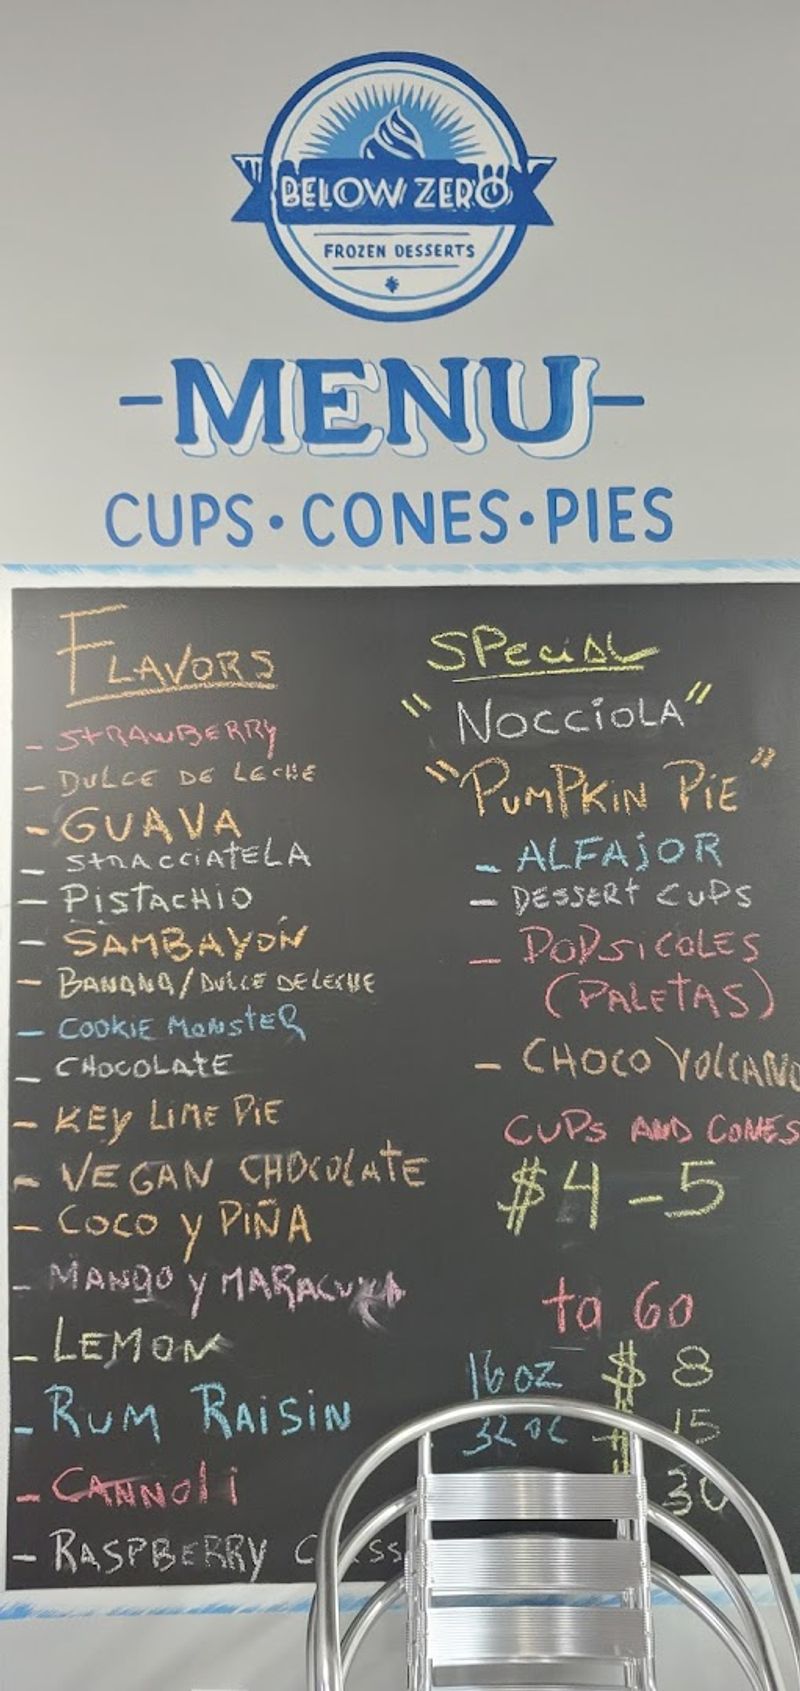 BELOW ZERO
FROZEN DESSERTS
-MENU-
CUPS · CONES · PIES
FLAVORS
- STRAWBERRY
- DULCE DE LECHE
- GUAVA
- STRACCIATELA
- PISTACHIO
- SAMBAYÓN
- BANANA/DULCE DE LECHE
- COOKIE MONSTER
- CHOCOLATE
- KEY LIME PIE
- VEGAN CHOCOLATE
- COCO y PIÑA
- MANGO y MARACUYA
- LEMON
- RUM RAISIN
- CANNOLI
- RASPBERRY
SPECIAL
"NOCCIOLA"
"PUMPKIN PIE"
- ALFAJOR
- DESSERT CUPS
- POPSICOLES
(PALETAS)
- CHOCO VOLCANO
CUPS AND CONES
$4-5
to GO
16 oz $ 8
32 oz $ 15
30